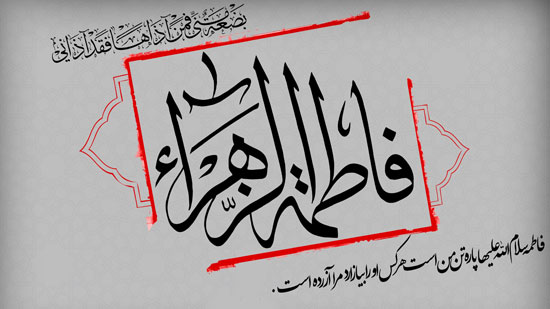 بضعة منی فمن آذاها فقد آذانی
فاطمة الزهراء
فاطمه سلام الله علیها پاره تن من است هر کس او را بیازارد مرا آزرده است .